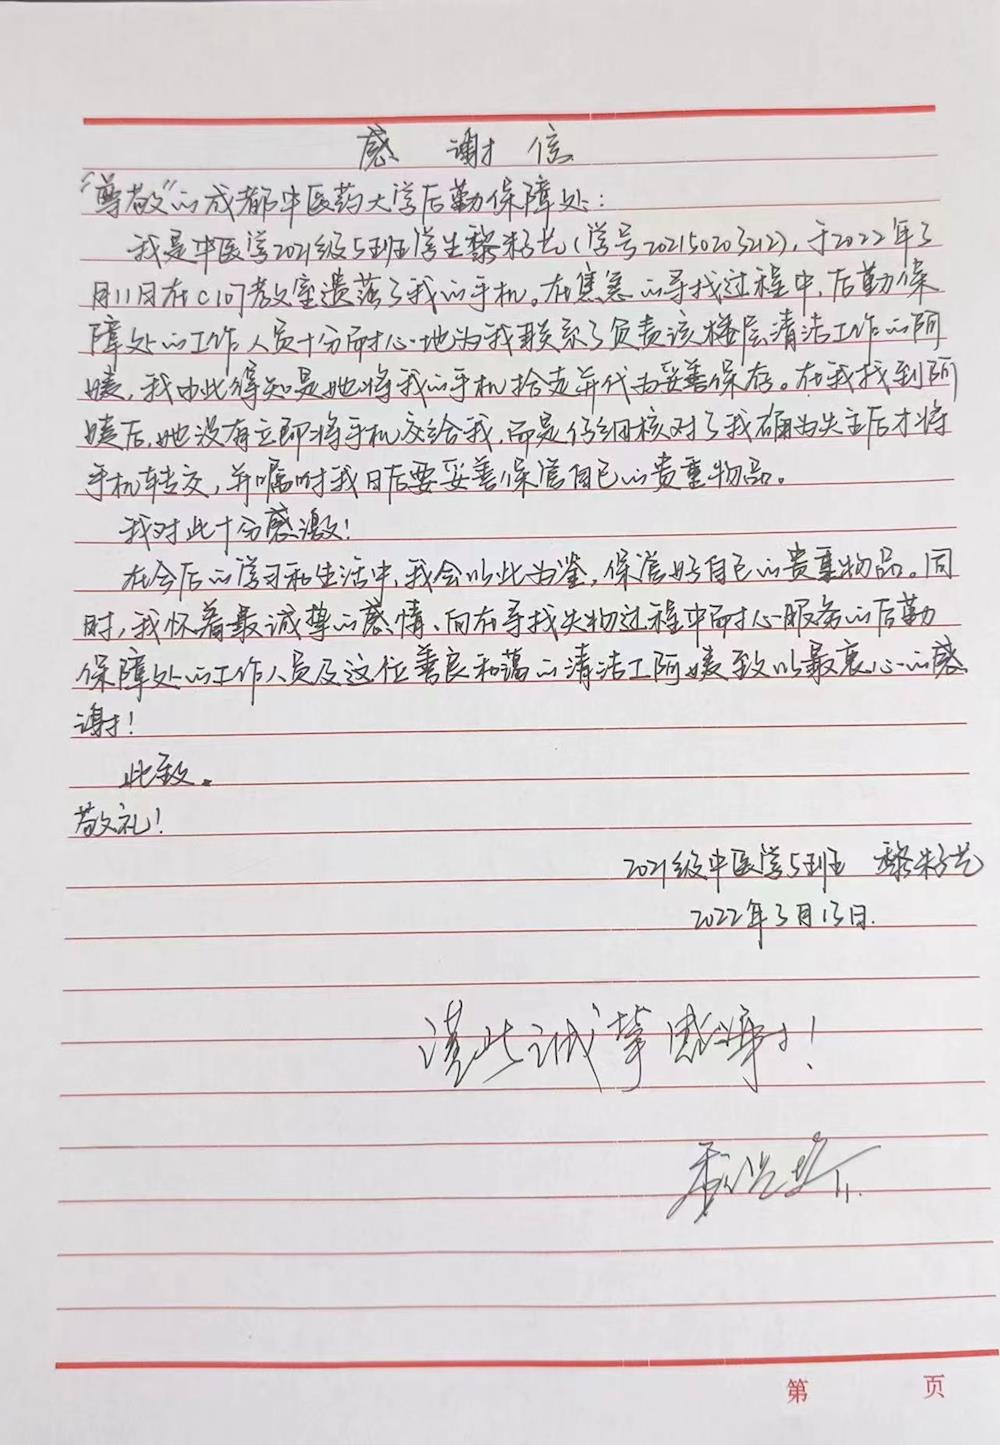 感 谢 信
“尊敬”的成都中医药大学后勤保障处：
我是中医学2021级5班学生黎籽兰（学号202150203212），于2022年3
月11日在C107教室遗落了我的手机。在焦急的寻找过程中，后勤保
障处的工作人员十分耐心地为我联系了负责该楼层清洁工作的阿
姨，我由此得知是她将我的手机拾走并代为妥善保存。在我找到阿
姨后，她没有立即将手机交给我，而是仔细核对了我确为失主后才将
手机转交，并嘱咐我日后要妥善保管自己的贵重物品。
我对此十分感激！
在今后的学习和生活中，我会以此为鉴，保管好自己的贵重物品。同
时，我怀着最诚挚的感情、向在寻找失物过程中耐心服务的后勤
保障处的工作人员及这位善良和蔼的清洁工阿姨致以最衷心的感
谢！
此致。
敬礼！
2021级中医学5班 黎籽兰
2022年3月13日.
谨此诚挚感谢！
第 页